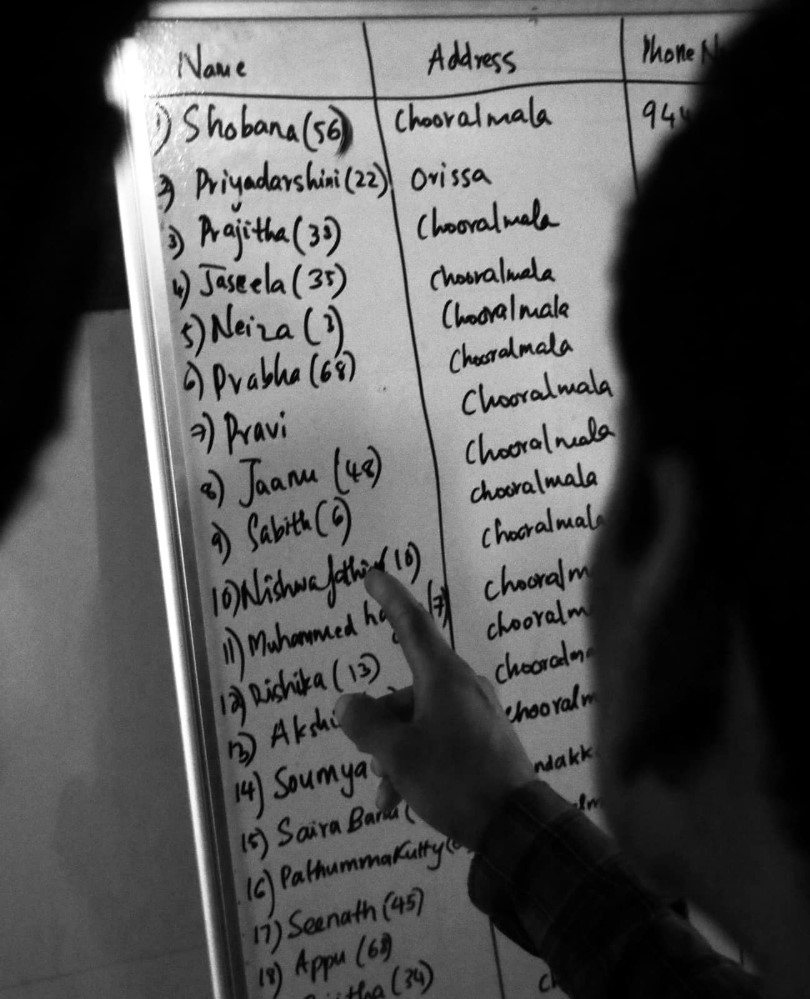 Name Address Phone N
1) Shobana (56) Chooralmala 944
2) Priyadarshini (22) Orissa
3) Prajitha (38) Chooralmala
4) Jaseela (35) Chooralmala
5) Neiza (3) Chooralmala
6) Prabha (68) Chooralmala
7) Pravi Chooralmala
8) Jaanu (48) Chooralmala
9) Sabith (6) Chooralmala
10) Nishwa (16) Chooralmala
11) Muhammed (7) Chooralm
12) Rishika (13) Chooralm
13) Akshi Chooralma
14) Soumya Chooralm
15) Saira Banu ( ndakk
16) Pathummakutty ( alm
17) Seenath (45)
18) Appu (68)
(34) Ch